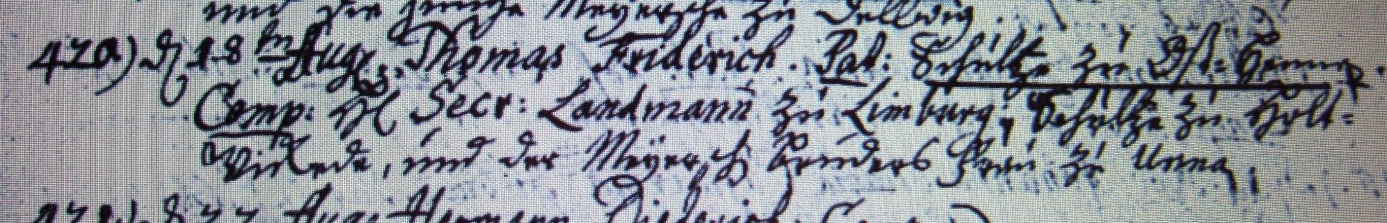 und die junge Meyersche zu Dellwig.
420) d 18 tn Aug. Thomas Friderich. Pat: Schultze zu Ost-Hennen.
Comp: H Secr: Landmann zu Limburg, Schultze zu Holt-
Wickede, und der Meyersch Bruders Frau zu Unna,
d 22 Aug. Hermann Diederich